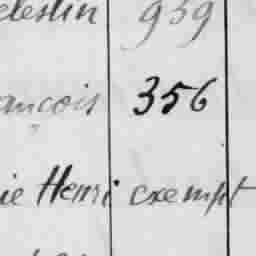 elestin 939
ançois 356
ie Henri exempt